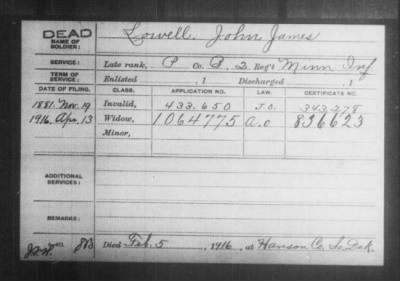 DEAD
NAME OF SOLDIER: Lowell, John James
SERVICE: Late rank, P Co. B, 2 Reg't Minn Inf
TERM OF SERVICE: Enlisted , 1 Discharged , 1
DATE OF FILING. CLASS. APPLICATION NO. LAW. CERTIFICATE NO.
1881. Nov. 19 Invalid, 433.650 343,278
1916. Apr. 13 Widow, 1064775 a.o 836623
Minor,
ADDITIONAL SERVICES:
REMARKS:
Died Feb. 5 , 1916, at Hanson Co. So. Dak.